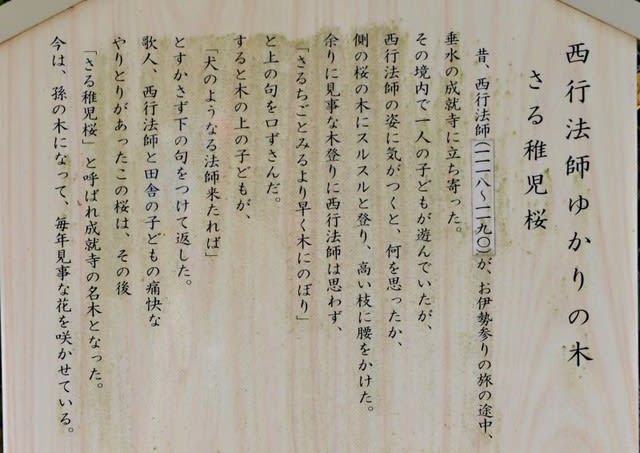 西行法師ゆかりの木
さる稚児桜
昔、西行法師(一一一八~一一九〇)が、お伊勢参りの旅の途中、
垂水の成就寺に立ち寄った。
その境内で一人の子どもが遊んでいたが、
西行法師の姿に気がつくと、何を思ったか、
側の桜の木にスルスルと登り、高い枝に腰をかけた。
余りに見事な木登りに西行法師は思わず、
「さるちごとみるより早く木にのぼり」
と上の句を口ずさんだ。
すると木の上の子どもが、
「犬のようなる法師来たれば」
とすかさず下の句をつけて返した。
歌人、西行法師と田舎の子どもの痛快な
やりとりがあったこの桜は、その後
「さる稚児桜」と呼ばれ成就寺の名木となった。
今は、孫の木になって、毎年見事な花を咲かせている。